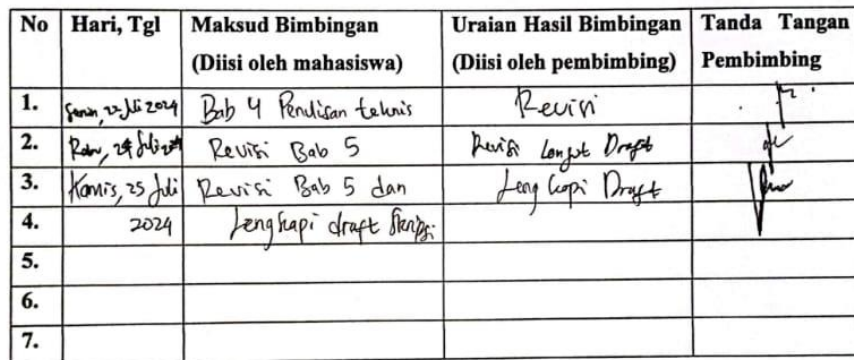 No Hari, Tgl Maksud Bimbingan Uraian Hasil Bimbingan Tanda Tangan
(Diisi oleh mahasiswa) (Diisi oleh pembimbing) Pembimbing
1. Senin, 22 Juli 2024 Bab 4 Penulisan teknis Revisi
2. Rabu, 24 Juli Revisi Bab 5 Revisi Lanjut Draft
3. Kamis, 25 Juli Revisi Bab 5 dan Lengkapi Draft
4. 2024 Lengkapi draft Skripsi
5.
6.
7.